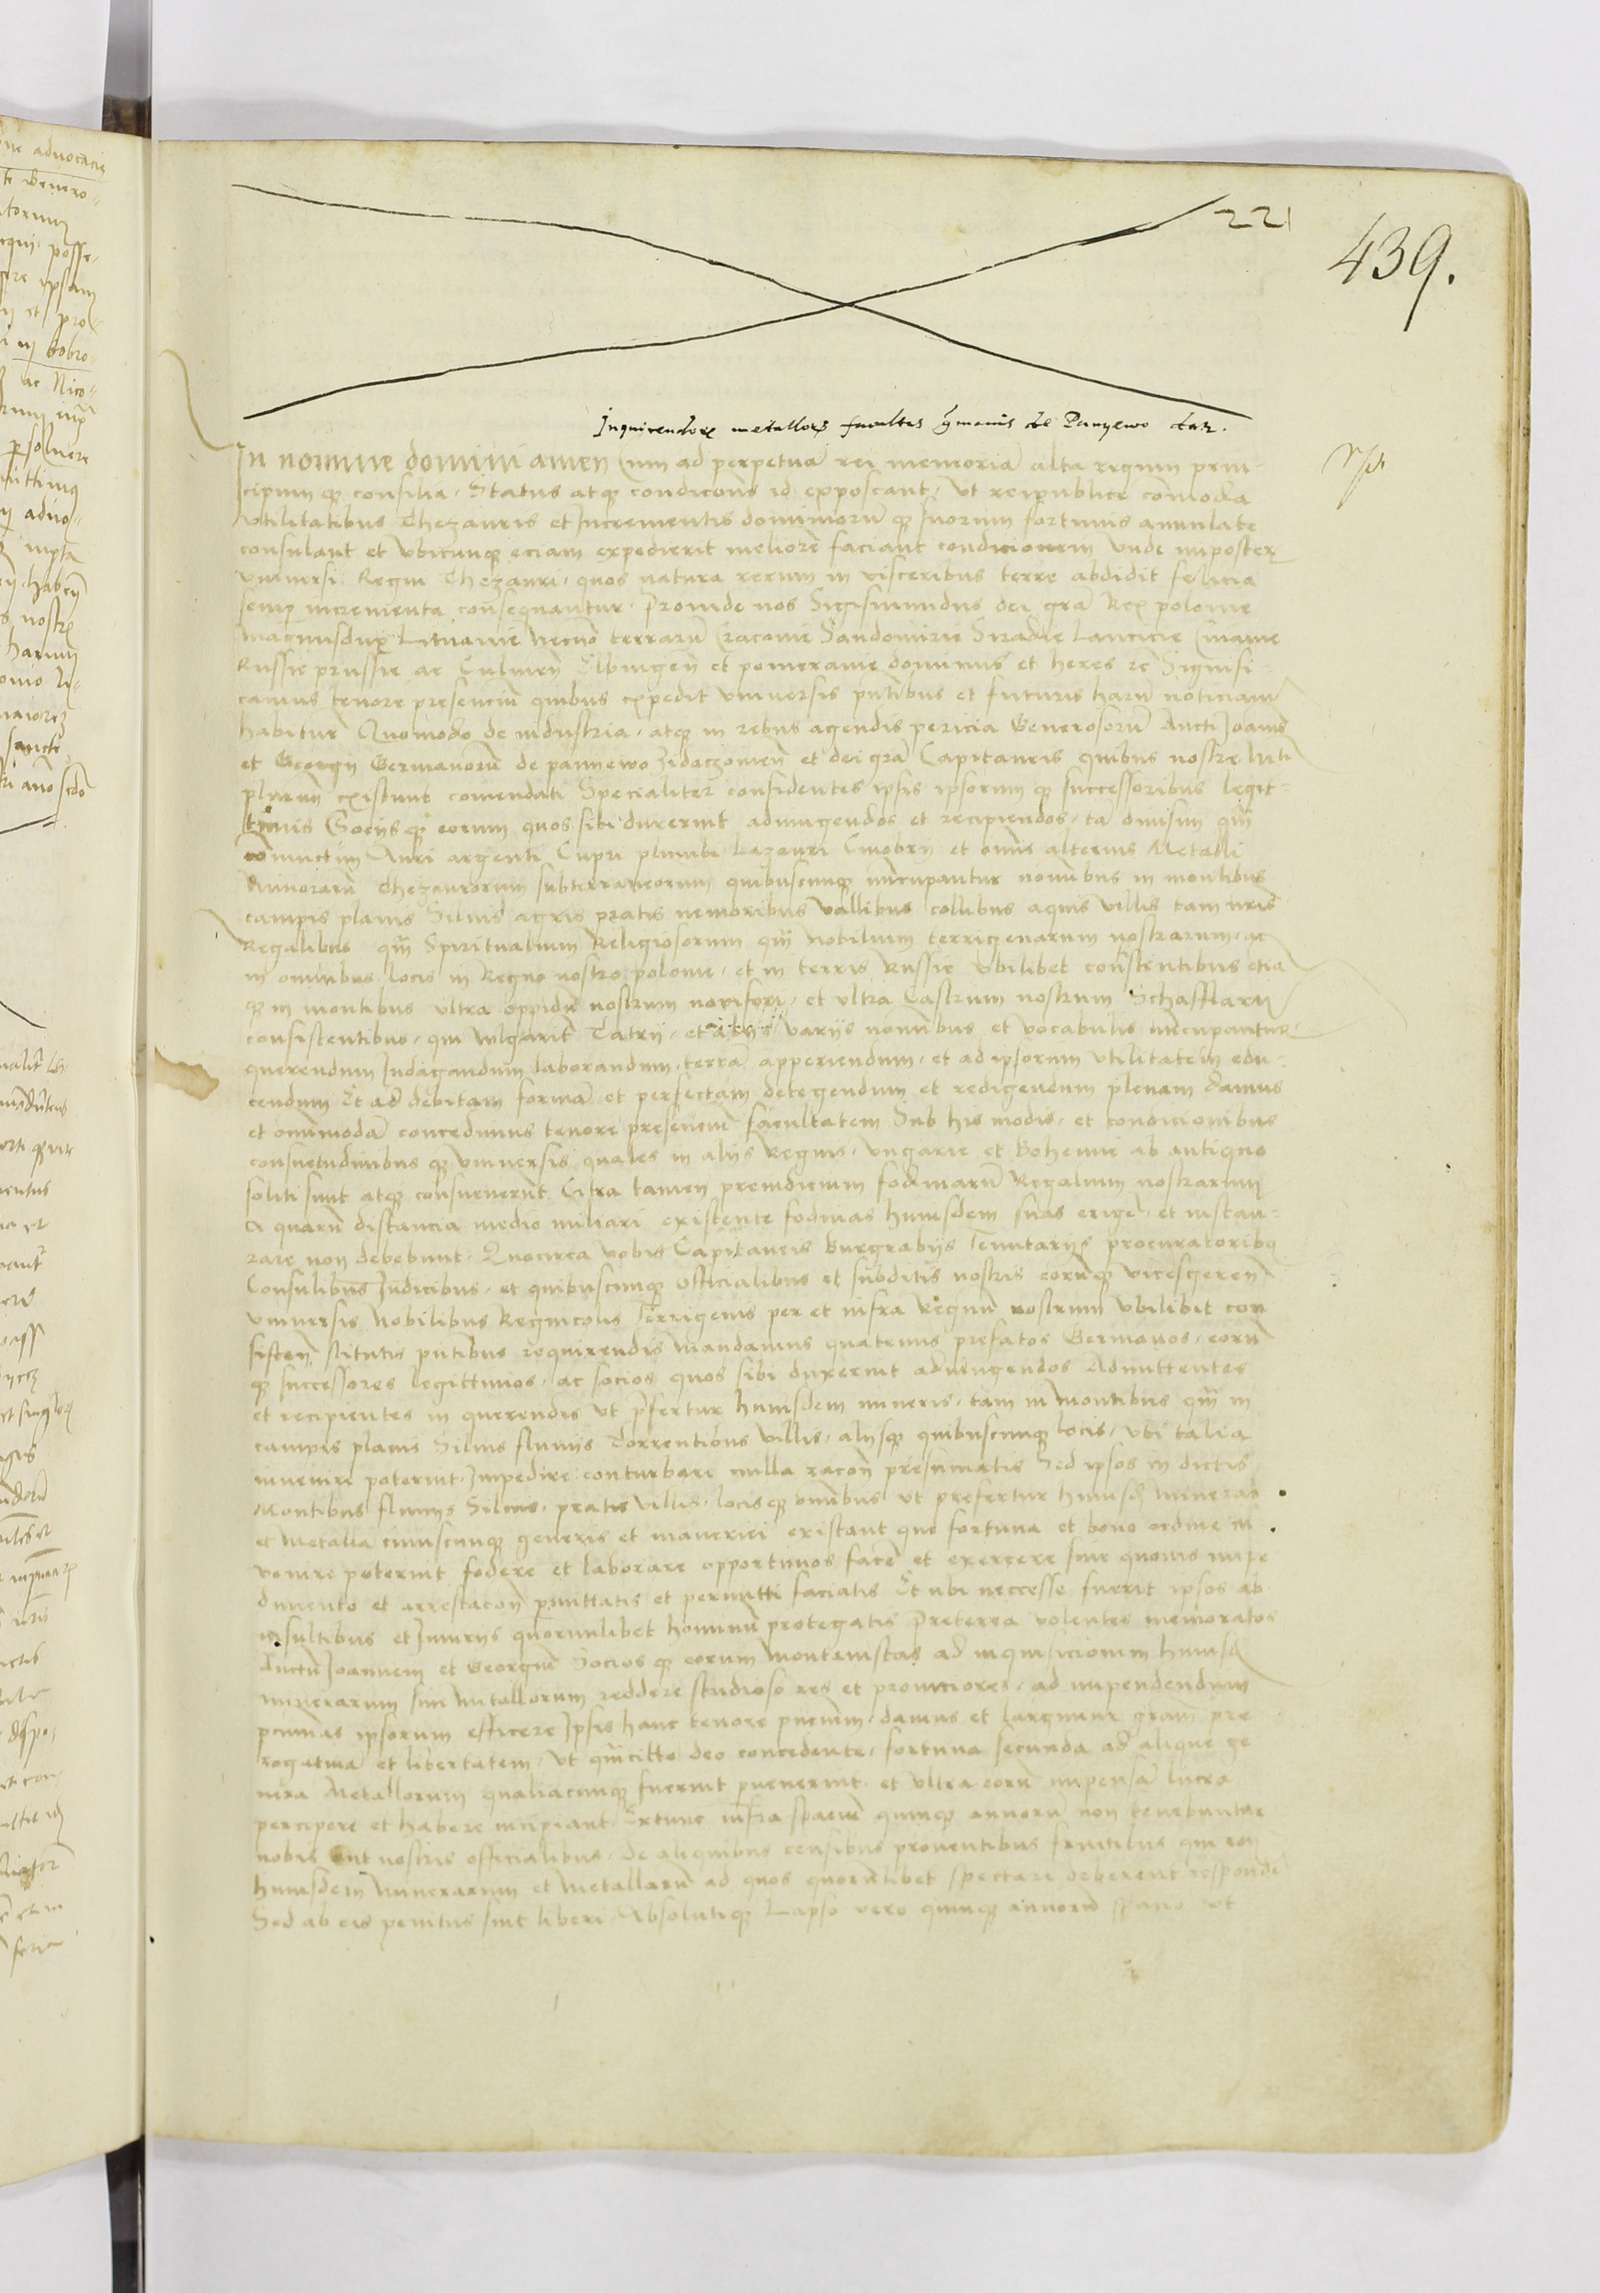 221
439.
Inquirendorum metallorum facultas germanis de Panyewo datur.
In nomine domini amen Cum ad perpetuam rei memoriam alta regum prin-
cipum q consilia, Status atq condicions id exposcant, ut reipublice comoda
utilitatibus Thezauris et Incrementis dominiorum q suorum fortunis annulate
consulant et ubicunq eciam expedierit meliore faciant condicionem unde in poster
universi Regni Thezauri, quos natura rerum in visceribus terre abdidit felicia
semp incrementa consequantur. Proinde nos Sigismundus dei gra Rex polonie
magnusdux Lituanie necno terraru Cracovie Sandomirie Siradie Lancicie Cuiavie
Russie prussie ac Culmen Elbingen et pomeranie dominus et heres rc Signifi-
camus tenore presenciu quibus expedit universis pntibus et futuris haru noticiam
habitur Quomodo de industria, atq in rebus agendis pericia Generosoru Aucti Joanis
et Georgii Germanoru de pannewo Zidaczowien et dei gra Capitaneis quibus nostre
plurim existunt comendati Specialiter confidentes ipsis ipsorum q successoribus legit-
timis Sociisq eorum quos sibi duxerint adiungendos et recipiendos, ta divisim qm
coniunctim Auri argenti Cupri plumbi Lazauri Cinobrii et omis alterius Metalli
Minoraru Thezaurorum subterraneorum quibuscunq nuncupantur nominibus in montibus
campis planis Silvis agris pratis nemoribus vallibus collibus aquis villis tam nris
Regalibus qm Spiritualium Religiosorum qm Nobilium terrigenarum nostrarum, ac
in omnibus locis in Regno nostro polonie, et in terris Russie ubilibet consistentibus etia
q in montibus ultra oppidu nostrum novifori, et ultra Castrum nostrum Schafflari
consistentibus, qui vulgarit Tatrij, et aliis variis nominibus et vocabulis nuncupantur
querendum Indagandum laborandum, terra apperiendum, et ad ipsorum utilitatem edu-
cendum Et ad debitam forma et perfectam detegendum et redigendum plenam damus
et omnimoda concedimus tenore presencium facultatem Sub his modis, et condicionibus
consuetudinibus q universis quales in aliis Regnis, Ungarie et Bohemie ab antiquo
soliti sunt atq consueverunt Citra tamen preiudicium fodinaru Regalium nostrarum
A quaru distancia medio miliari existente fodinas huiusdem suas erige, et instau-
rare non debebunt. Quocirca vobis Capitaneis Burgrabiis Tenutariis procuratoribq
Consulibus Iudicibus, et quibuscunq officialibus et subditis nostris eorumq vicesgeren
universis Nobilibus Regnicolis Terrigenis per et infra Regnu nostrum ubilibet con
sisten pntibus requirendis mandamus quatenus prefatos Germanos, eoru
q successores legittimos, ac socios quos sibi duxerint adiungendos Admittentes
et recipientes in querendis ut pfertur huiusdem mineris, tam in montibus qm in
campis planis Silvis fluviis Torrentibus villis, aliisq quibuscunq locis, ubi talia
invenire poterint, Impedire conturbare nulla racon presumatis Sed ipsos in dictis
Montibus fluviis Silvis, pratis villis, locisq omnibus ut prefertur huiusd minerab
et Metalla cuiuscunq generis et maneriei existant que fortuna et bono ordine in
venire poterint fodere et laborare opportunos face et exercere sine quovis impe
dimento et arrestacon pmittatis et permitti faciatis Et ubi neccesse fuerit ipsos ab
insultibus et Iniuriis quorumlibet hominu protegatis Preterea volentes memoratos
Auctu Joannem et Georgiu Socios q eorum montanistas ad inquisicionem huiusd
minerarum sive metallorum reddere studioso res et promciores, ad impendendum
pcunias ipsorum efficere Ipsis hanc tenore pncium, damus et largimur gram pre
rogativa et libertatem, ut qm citto deo concedente, fortuna secunda ad aliqua ge
nera Metallorum qualiacunq fuerint pvenerint et ultra eoru impensa lucra
percipere et habere incipiant, Extunc infra spaciu quinq annoru non tenebuntur
nobis aut nostris officialibus, de aliquibus censibus proventibus fructibus qui
huiusdem minerarum et Metallaru ad quos quorumlibet spectare deberent responde
Sed ab eis penitus sint liberi Absolutiq Lapso vero quinq annoru spacio ut